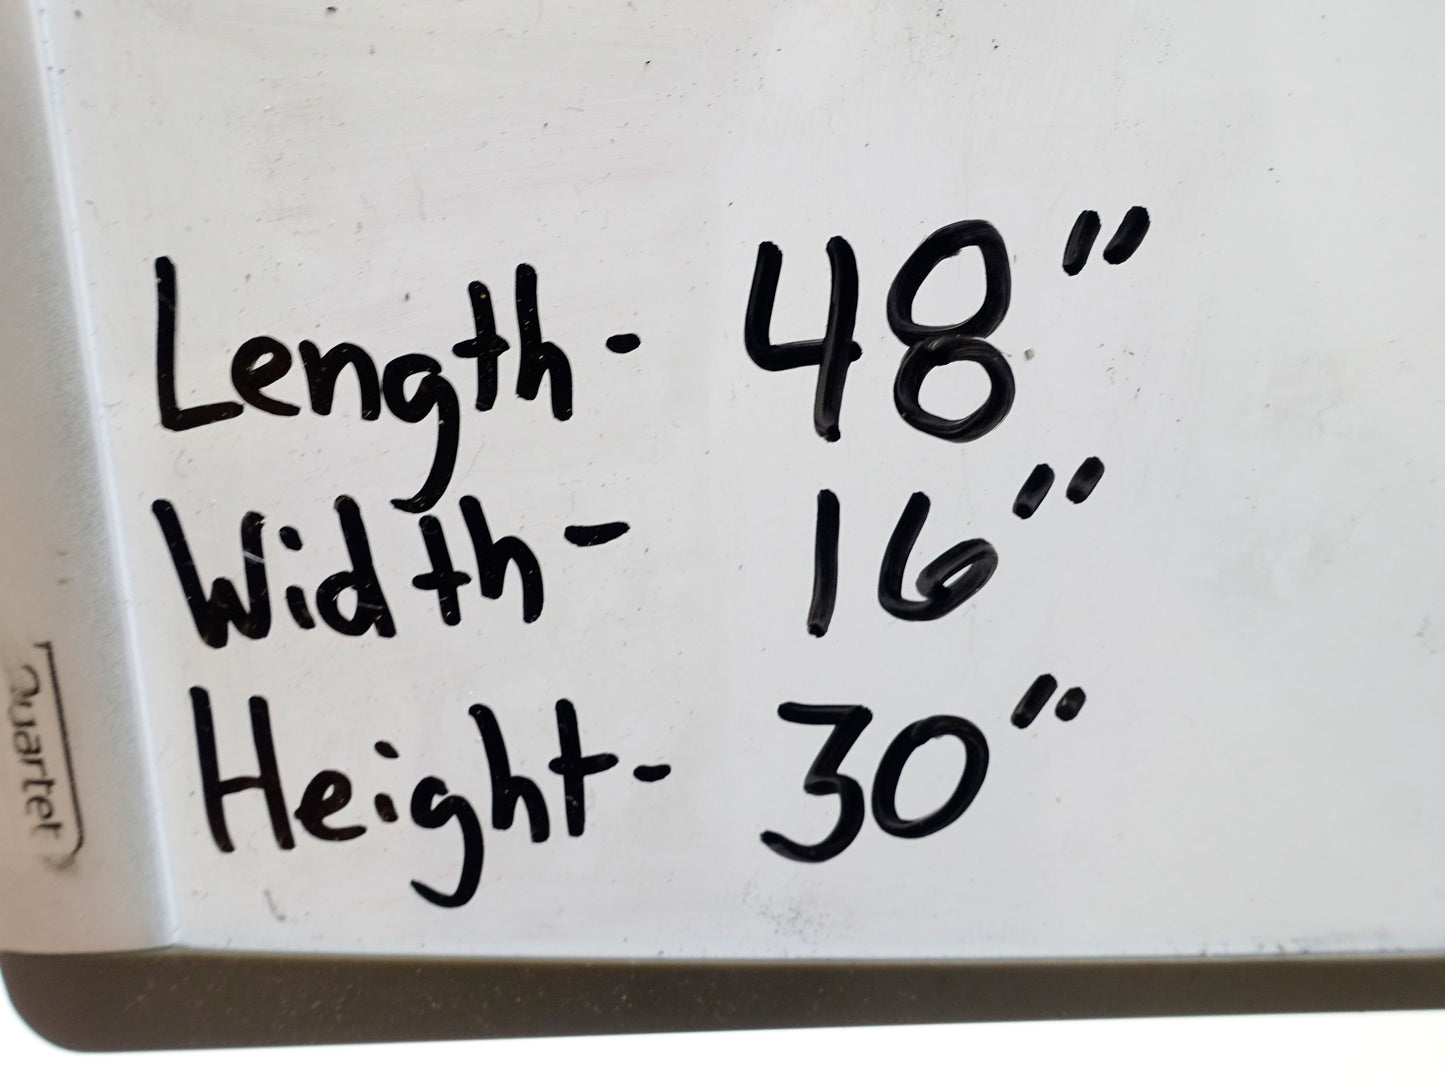 Length- 48"
Width- 16"
Height- 30"
Quartet